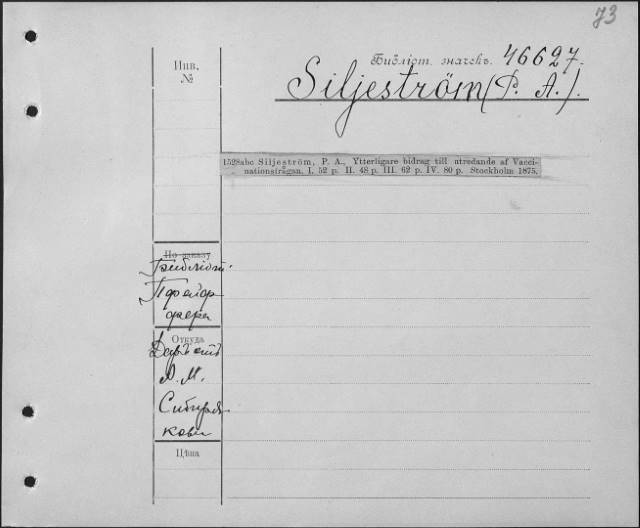 73
Инв.
№
Библіот. значекъ. 46627.
Siljeström (P. A.).
1528abc Siljeström, P. A., Ytterligare bidrag till utredande af Vacci-
nationsfrågan. I. 52 p. II. 48 p. III. 62 p. IV. 80 p. Stockholm 1875.
По заказу
Откуда
А. М.
Сибиря-
кова
Цѣна